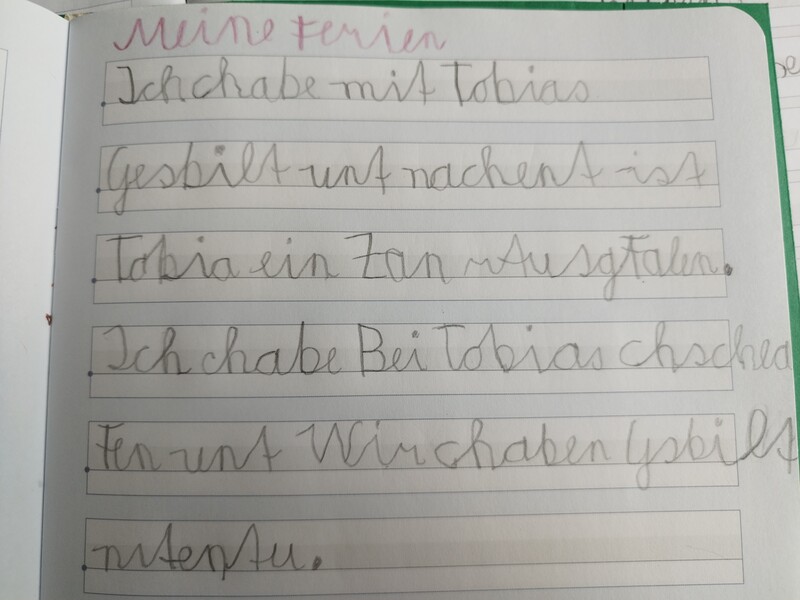 Meine Ferien
Ich chabe mit Tobias
Gesbilt unt nachent ist
Tobia ein Zan Ausgfalen.
Ich chabe Bei Tobias
Fen unt Wir chaben Gsbilt